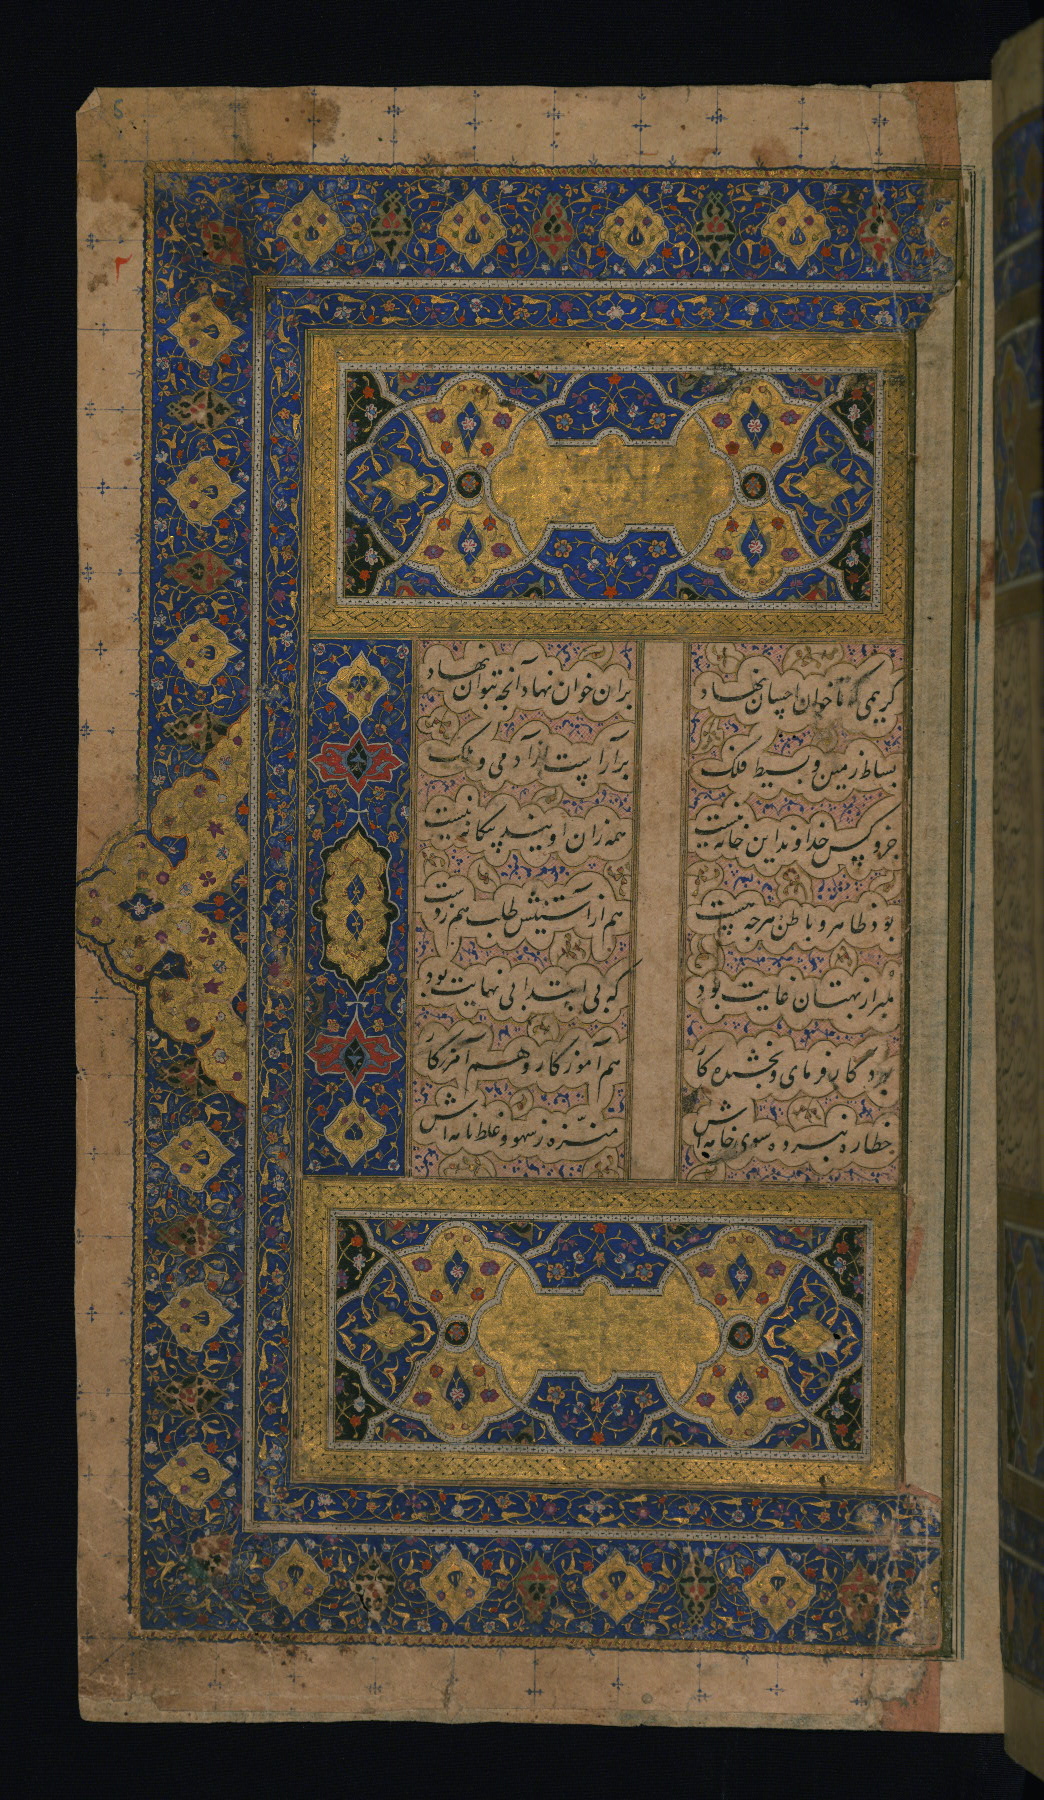 5
کریمی که تا خوان احسان نهاد بران خوان نهاد آنچه بتوان نهاد
بساط زمین و بسیط فلک برآراست از آدمی و ملک
جزو کس خداوند این خانه نیست همه زان اویند بیکانه نیست
بود ظاهر و باطن هر چه هست هم از آستینش طلب هم ز دست
مبرا ز بهتان غایت بود که بی ابتدا بی نهایت بود
بود کارفرمای و بخشنده کار هم آموزکار و هم آمرزکار
خطا ره نبرده سوی خامه اش منزه ز سهو و غلط نامه اش